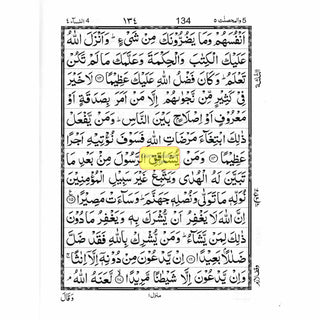 والمحصنت ٥ 134 ١٣٤ النسآء ٤
اَنْفُسَهُمْ وَمَا يَضُرُّوْنَكَ مِنْ شَىْءٍ ؕ وَاَنْزَلَ اللّٰهُ
عَلَيْكَ الْكِتٰبَ وَالْحِكْمَةَ وَعَلَّمَكَ مَا لَمْ تَكُنْ
تَعْلَمُ ؕ وَكَانَ فَضْلُ اللّٰهِ عَلَيْكَ عَظِيْمًا ۝ لَا خَيْرَ
فِىْ كَثِيْرٍ مِّنْ نَّجْوٰىهُمْ اِلَّا مَنْ اَمَرَ بِصَدَقَةٍ اَوْ
مَعْرُوْفٍ اَوْ اِصْلَاحٍ ۢ بَيْنَ النَّاسِ ؕ وَمَنْ يَّفْعَلْ
ذٰلِكَ ابْتِغَآءَ مَرْضَاتِ اللّٰهِ فَسَوْفَ نُؤْتِيْهِ اَجْرًا
عَظِيْمًا ۝ وَمَنْ يُّشَاقِقِ الرَّسُوْلَ مِنْۢ بَعْدِ مَا
تَبَيَّنَ لَهُ الْهُدٰى وَيَتَّبِعْ غَيْرَ سَبِيْلِ الْمُؤْمِنِيْنَ
نُوَلِّهٖ مَا تَوَلّٰى وَنُصْلِهٖ جَهَنَّمَ ؕ وَسَآءَتْ مَصِيْرًا ۝
اِنَّ اللّٰهَ لَا يَغْفِرُ اَنْ يُّشْرَكَ بِهٖ وَيَغْفِرُ مَا دُوْنَ
ذٰلِكَ لِمَنْ يَّشَآءُ ؕ وَمَنْ يُّشْرِكْ بِاللّٰهِ فَقَدْ ضَلَّ
ضَلٰلًاۢ بَعِيْدًا ۝ اِنْ يَّدْعُوْنَ مِنْ دُوْنِهٖۤ اِلَّاۤ اِنٰثًا ۚ
وَاِنْ يَّدْعُوْنَ اِلَّا شَيْطٰنًا مَّرِيْدًا ۝ لَّعَنَهُ اللّٰهُ ۘ
وَقَالَ
منزل ١